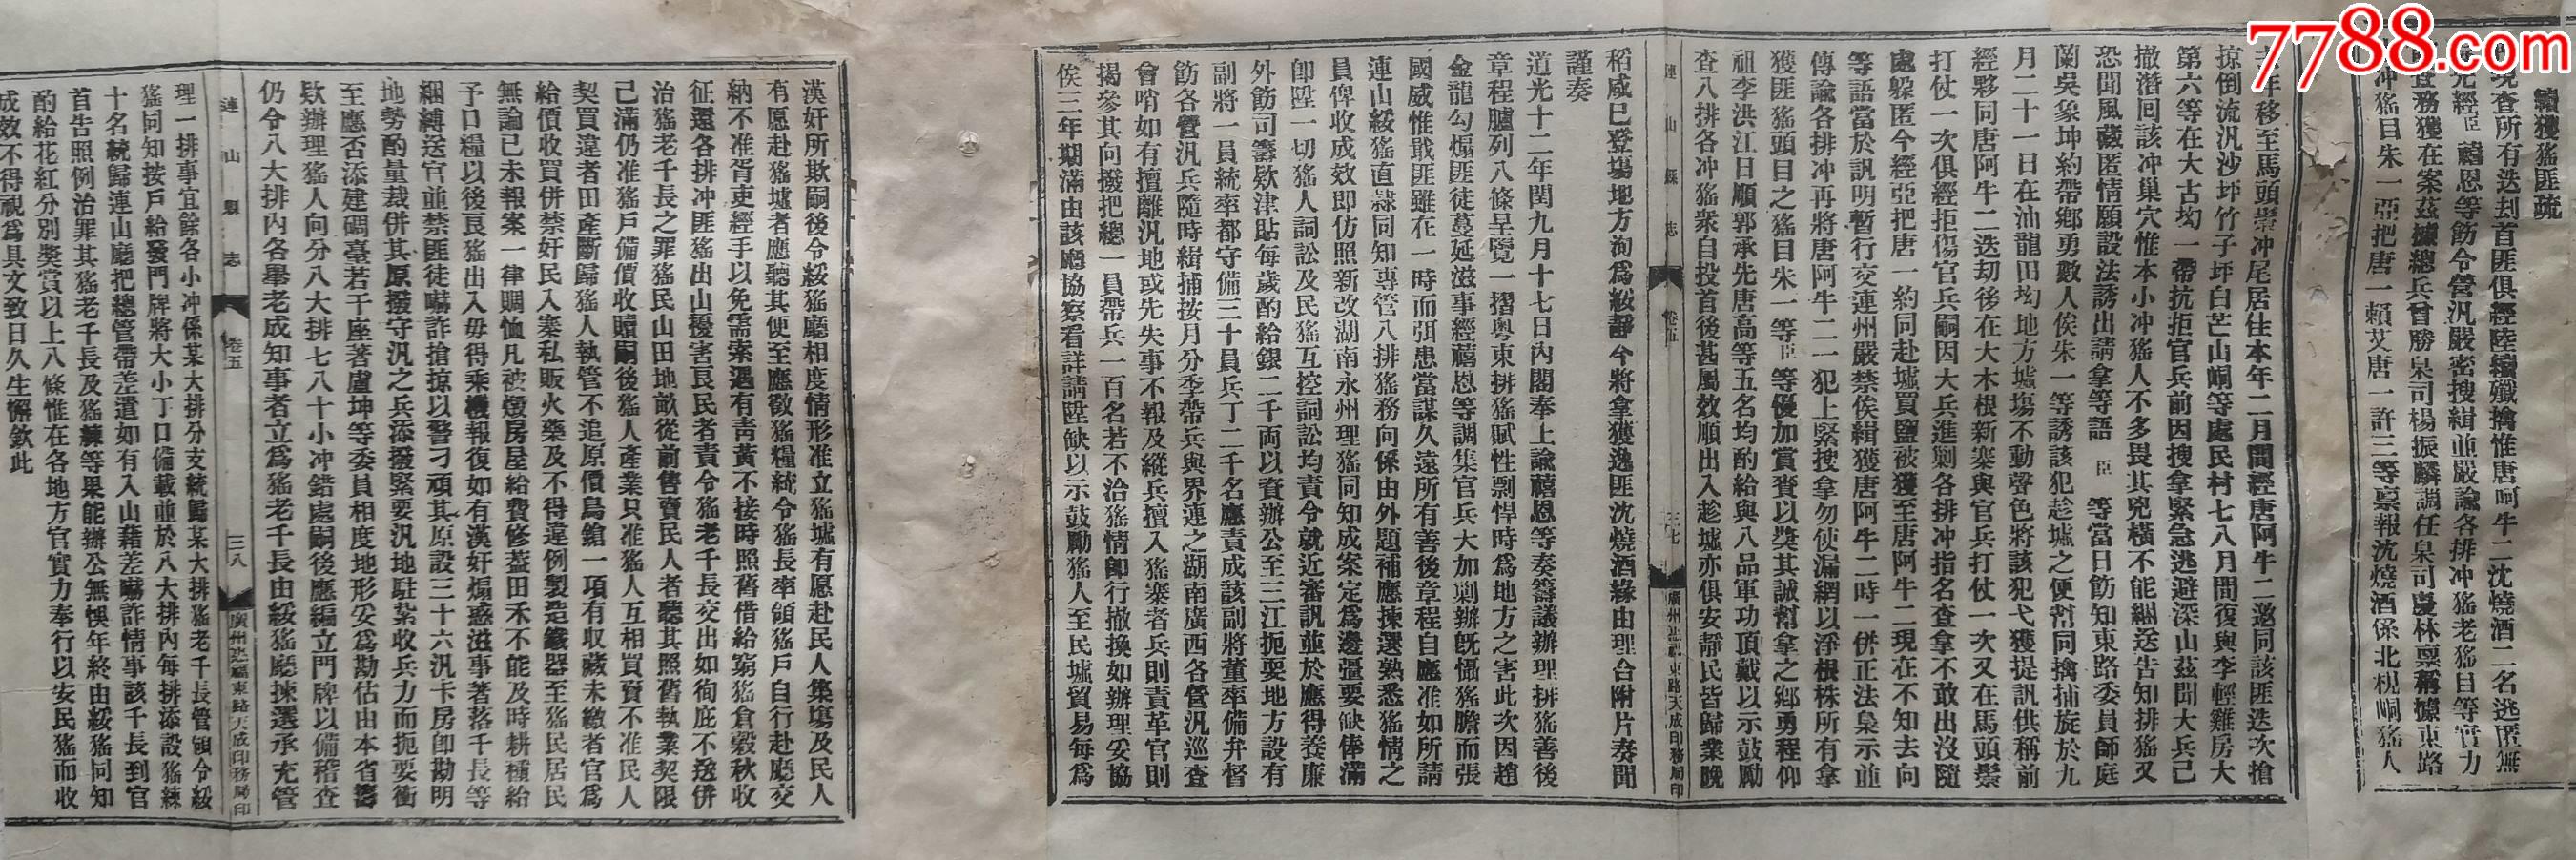 7788.com
續獲猺匪疏
現查所有迭刦首匪俱經陸續殲擒惟唐呵牛二沈燒酒二名逃匿無
先經臣禧恩等飭令營汛嚴密搜緝並嚴諭各排冲猺老猺目等實力
查務獲在案茲據總兵曾勝臬司楊振麟調任臬司慶林稟稱據東路
冲猺目朱一亞把唐一賴艾唐一許三等稟報沈燒酒係北梘峒猺人
年移至馬頭崇冲尾居住本年二月間經唐阿牛二邀同該匪迭次搶
掠倒流汛沙坪竹子坪白芒山峒等處民村七八月間復與李輕雞房大
第六等在大古㘭一帶抗拒官兵前因搜拿緊急逃避深山茲聞大兵已
撤潛囘該冲巢穴惟本小冲猺人不多畏其兇橫不能綑送告知排猺又
恐聞風藏匿情願設法誘出請拿等語臣等當日飭知東路委員師庭
蘭吳象坤約帶鄉勇數人俟朱一等誘該犯趁墟之便幫同擒捕旋於九
月二十一日在油龍田㘭地方墟塲不動聲色將該犯弋獲提訊供稱前
經夥同唐阿牛二迭刧後在大木根新寨與官兵打仗一次又在馬頭鬃
打仗一次俱經拒傷官兵嗣因大兵進剿各排冲指名查拿不敢出沒隨
處躲匿今經亞把唐一約同赴墟買鹽被獲至唐阿牛二現在不知去向
等語當於訊明暫行交連州嚴禁俟緝獲唐阿牛二時一併正法梟示並
傳諭各排冲再將唐阿牛二一犯上緊搜拿勿使漏網以淨根株所有拿
獲匪猺頭目之猺目朱一等臣等優加賞賚以奬其誠幫拿之鄉勇程仰
祖李洪江日順郭承先唐高等五名均酌給與八品軍功頂戴以示鼓勵
查八排各冲猺衆自投首後甚屬效順出入趁墟亦俱安靜民皆歸業晚
連山縣志 卷五 三七 廣州惠福東路天成印務局印
稻咸已登塲地方洵爲綏靜今將拿獲逸匪沈燒酒緣由理合附片奏聞
謹奏
道光十二年閏九月十七日內閣奉上諭禧恩等奏籌議辦理排猺善後
章程臚列八條呈覽一摺粵東排猺賦性剽悍時爲地方之害此次因趙
金龍勾煽匪徒蔓延滋事經禧恩等調集官兵大加剿辦旣懾猺膽而張
國威惟戢匪雖在一時而弭患當謀久遠所有善後章程自應准如所請
連山綏猺直隸同知專管八排猺務向係由外題補應揀選熟悉猺情之
員俾收成效即仿照新改湖南永州理猺同知成案定爲邊疆要缺俸滿
卽陞一切猺人詞訟及民猺互控詞訟均責令就近審訊並於應得養廉
外飭司籌欵津貼每歲酌給銀二千両以資辦公至三江扼要地方設有
副將一員統率都守備三十員兵丁二千名應責成該副將董率備弁督
飭各營汛兵隨時緝捕按月分季帶兵與界連之湖南廣西各營汛巡查
會哨如有擅離汛地或先失事不報及縱兵擅入猺寨者兵則責革官則
揭參其向撥把總一員帶兵一百名若不洽猺情卽行撤換如辦理妥協
俟三年期滿由該廳協察看詳請陞缺以示鼓勵猺人至民墟貿易每爲
漢奸所欺嗣後令綏猺廳相度情形准立猺墟有愿赴民人集塲及民人
有愿赴猺墟者應聽其便至應徵猺糧統令猺長率領猺戶自行赴廳交
納不准胥吏經手以免需索遇有靑黃不接時照舊借給窮猺倉穀秋收
征還各排冲匪猺出山擾害良民者責令猺老千長交出如徇庇不送併
治猺老千長之罪猺民山田地畝從前售賣民人者聽其照舊執業契限
已滿仍准猺戶備價收贖嗣後猺人產業只准猺人互相買賣不准民人
契買違者田產斷歸猺人執管不追原價鳥鎗一項有収藏未繳者官爲
給價收買併禁奸民入寨私販火藥及不得違例製造鐵器至猺民居民
無論已未報案一律賙恤凡被燬房屋給費修葢田禾不能及時耕種給
予口糧以後良猺出入毋得乘機報復如有漢奸煽惑滋事著落千長等
綑縛送官並禁匪徒嚇詐搶掠以警刁頑其原設三十六汛卡房卽勘明
地勢酌量裁併其原撥守汛之兵添撥緊要汛地駐紮收兵力而扼要衝
至應否添建碉臺若干座著盧坤等委員相度地形妥爲勘估由本省籌
欵辦理猺人向分八大排七八十小冲錯處嗣後應編立門牌以備稽查
仍令八大排內各舉老成知事者立爲猺老千長由綏猺廳揀選承充管
連山縣志 卷五 三八 廣州惠福東路天成印務局印
理一排事宜餘各小冲係某大排分支統歸某大排猺老千長管領令綏
猺同知按戶給發門牌將大小丁口備載並於八大排內每排添設猺練
十名統歸連山廳把總管帶差遣如有入山藉差嚇詐情事該千長到官
首告照例治罪其猺老千長及猺練等果能辦公無悞年終由綏猺同知
酌給花紅分別奬賞以上八條惟在各地方官實力奉行以安民猺而收
成效不得視爲具文致日久生懈欽此